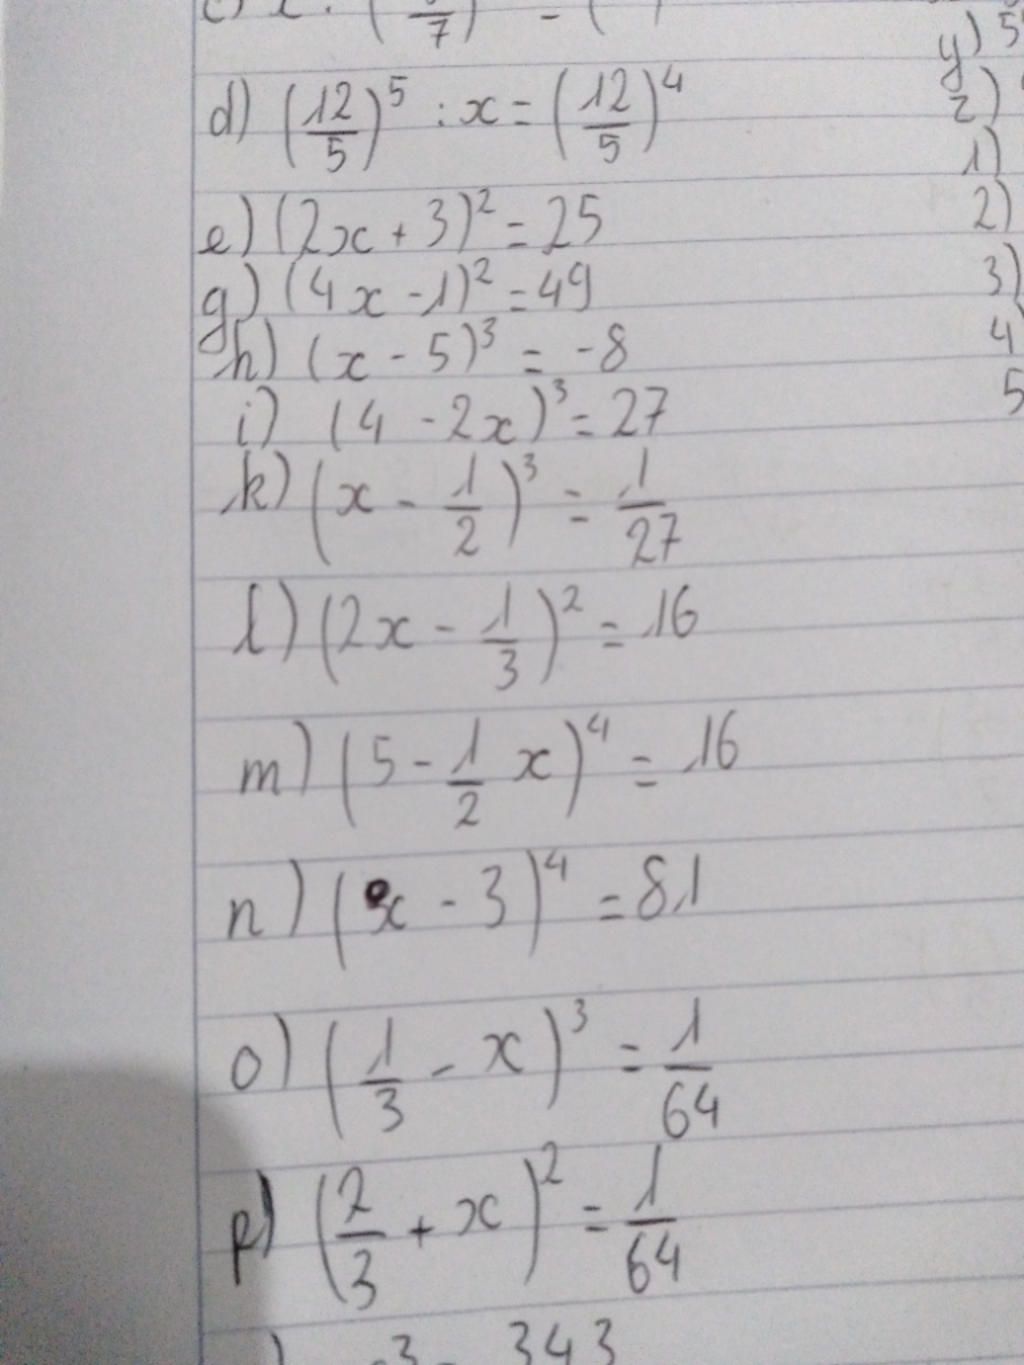 d) (12/5)^5 : x = (12/5)^4
e) (2x + 3)^2 = 25
g) (4x - 1)^2 = 49
h) (x - 5)^3 = -8
i) (4 - 2x)^3 = 27
k) (x - 1/2)^3 = 1/27
l) (2x - 1/3)^2 = 16
m) (5 - 1/2 x)^4 = 16
n) (x - 3)^4 = 81
o) (1/3 - x)^3 = 1/64
p) (2/3 + x)^2 = 1/64
343
y) 5
z)
1)
2)
3)
4)
5